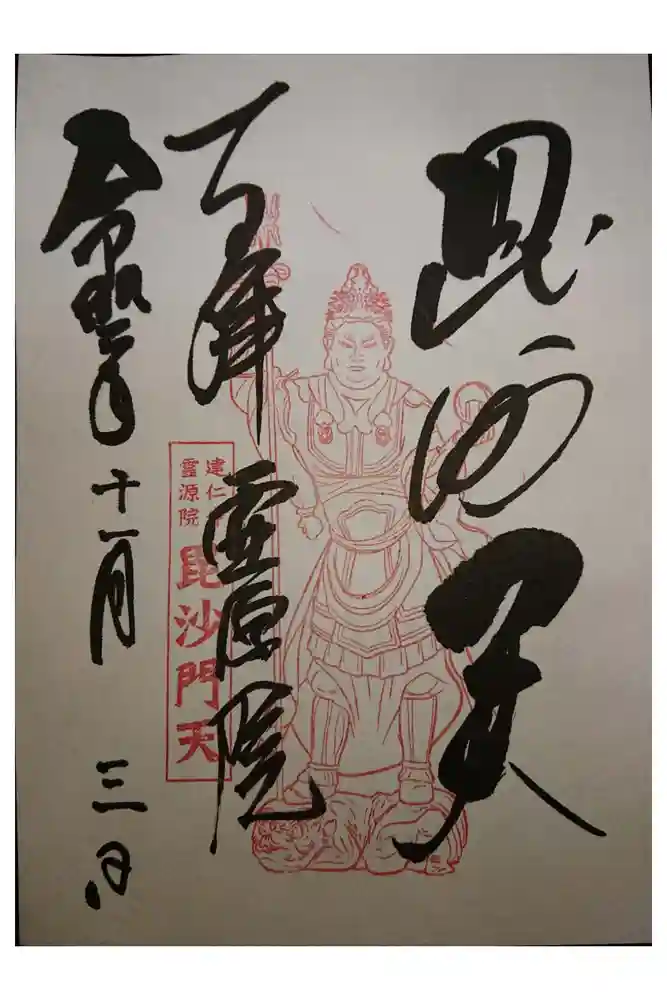 毘沙門天
霊源院
令和
年
十一月
三日
建仁寺
霊源院
毘沙門天